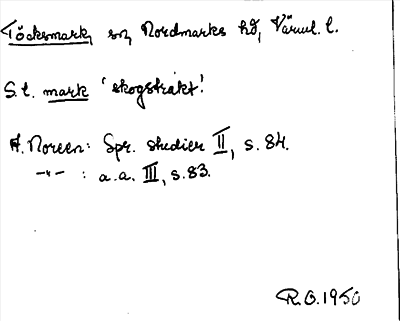 Töcksmark, sn, Nordmarks hd, Värml. l.
S. l. mark 'skogstrakt'.
A. Noreen: Spr. studier II, s. 84.
—〃— : a.a. III, s. 83.
R.O. 1950